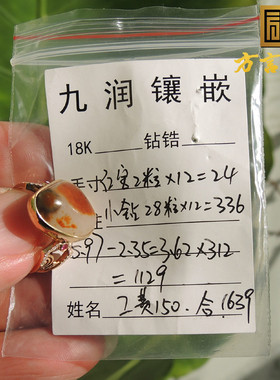 方言
九润镶嵌
18K 钻锆
手寸红宝2粒×12=24
小钻28粒×12=336
5.97-2.35=3.62×312
=1129
姓名 工费150.合1639